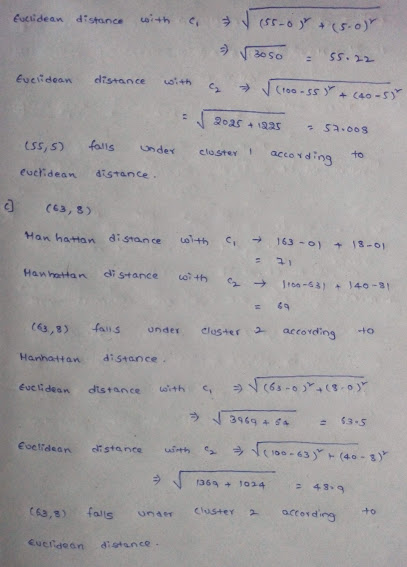 Euclidean distance with C₁ ⇒ √(55-0)² + (5-0)²
⇒ √3050 = 55.22
Euclidean distance with C₂ ⇒ √(100-55)² + (40-5)²
= √2025 + 1225 = 57.008
(55,5) falls under cluster 1 according to
euclidean distance.
c] (63,8)
Manhattan distance with C₁ → |63-0| + |8-0|
= 71
Manhattan distance with C₂ → |100-63| + |40-8|
= 69
(63,8) falls under cluster 2 according to
Manhattan distance.
Euclidean distance with C₁ ⇒ √(63-0)² + (8-0)²
⇒ √3969 + 64 = 63.5
Euclidean distance with C₂ ⇒ √(100-63)² + (40-8)²
⇒ √1369 + 1024 = 48.9
(63,8) falls under cluster 2 according to
Euclidean distance.